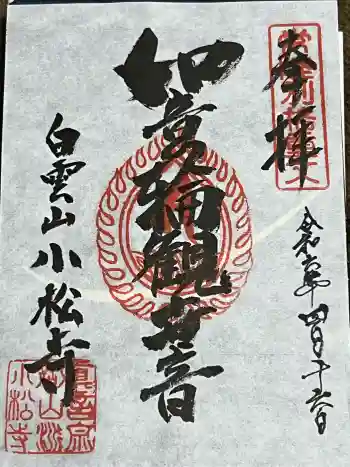 奉拝
令和六年四月十六日
如意輪観世音
白雲山小松寺
真言宗
小松寺